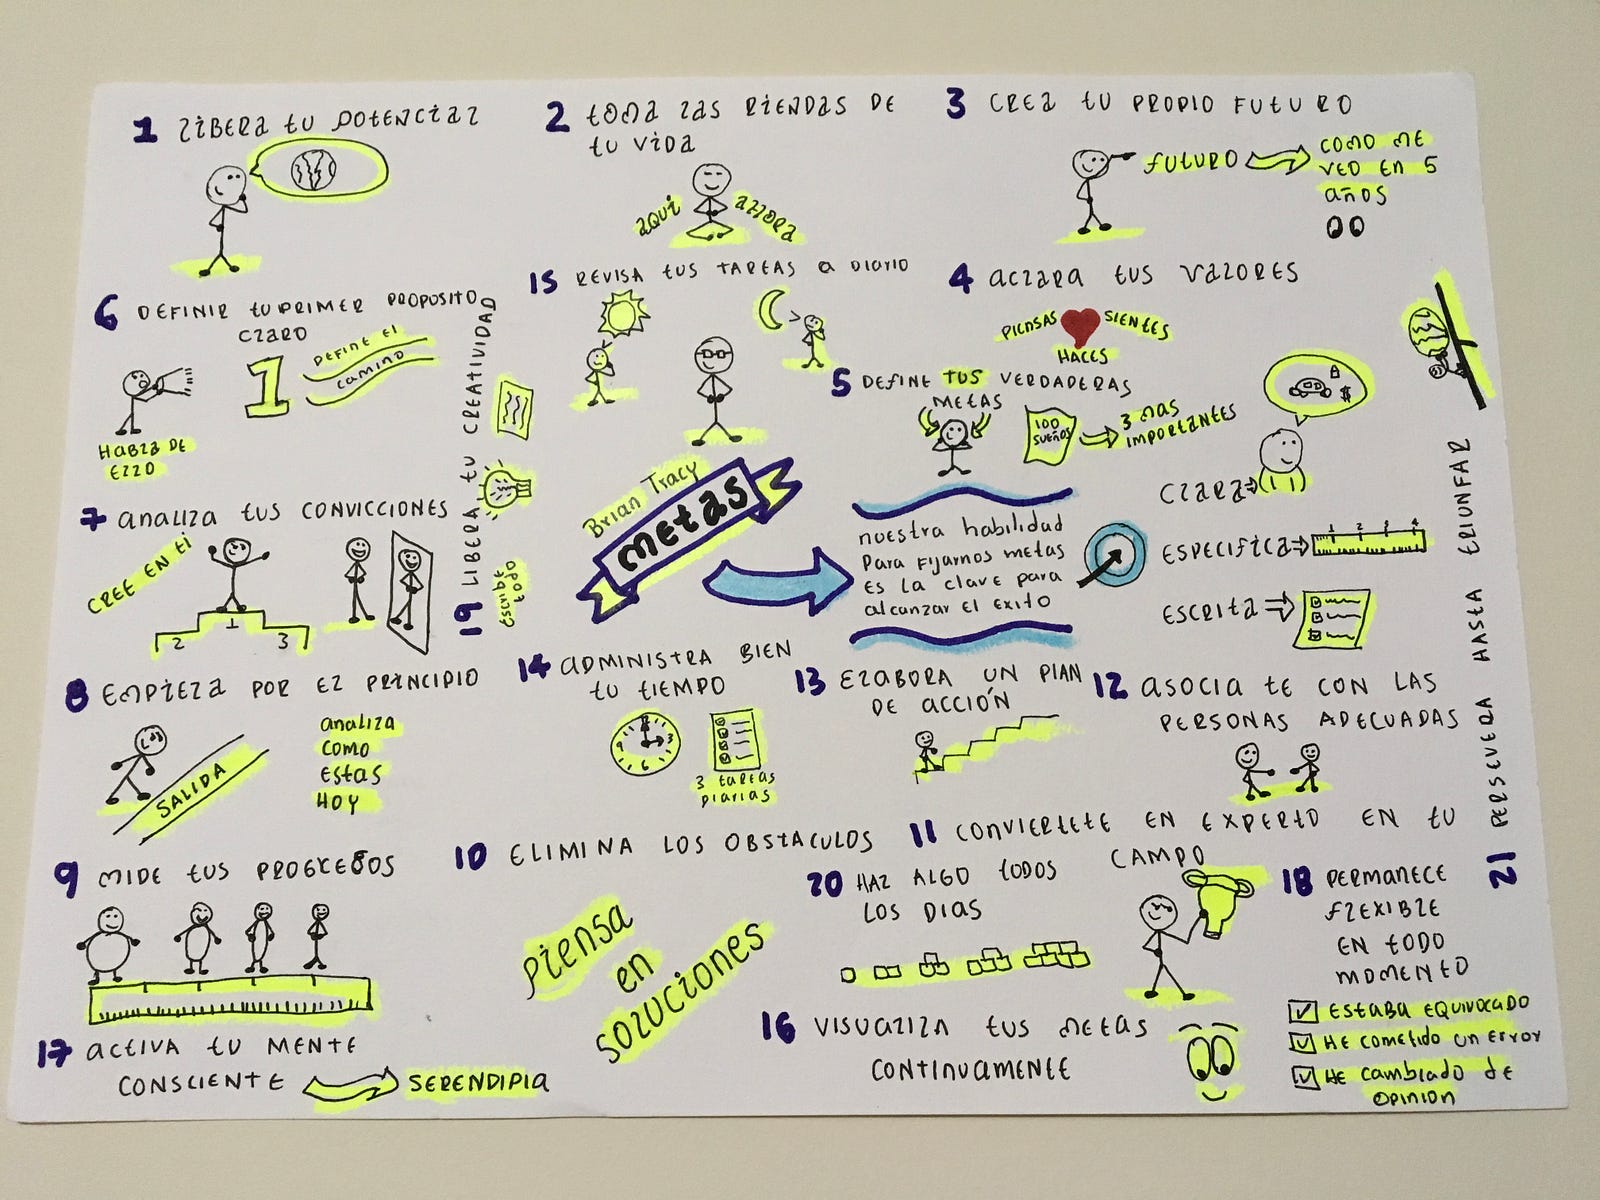 1 LIBERA tU POTENCIAL
2 toma LAS RIENDAS DE
tu VIDA
AQUÍ AHORA
3 CREA tU PROPIO FUTURO
FUTURO
COMO ME
VEO EN 5
AÑOS
4 ACLARA tUS VALORES
PIENSAS SIENTES
HACES
5 DEFINE TUS VERDADERAS
METAS
100
SUEÑOS
3 MAS
IMPORTANTES
$
CLARA
ESPECIFICA
1 2 3 4
ESCRITA
6 DEFINIR tU PRIMER PROPOSITO
CLARO
1
DEFINE El
CAMINO
HABLA DE
ELLO
7 analiza tus CONVICCIONES
CREE EN ti
2 1 3
8 EMPIEZA POR EL PRINCIPIO
SALIDA
analiza
COMO
EStas
HOY
9 MIDE tUS PROGRESOS
10 ELIMINA LOS OBSTACULOS
PIENSA
en
SOLUCIONES
11 CONVIERTETE EN EXPERTO EN tU
CAMPO
12 ASOCIA tE CON LAS
PERSONAS ADECUADAS
13 ELABORA UN PLAN
DE ACCIÓN
14 ADMINISTRA BIEN
tU tIEMPO
12 3 6 9
3 tareas
Diarias
15 REVISA tUS TAREAS a DIARIO
Brian Tracy
metas
nuestra habilidad
Para Fijarnos metas
Es La clave para
alcanzar El Exito
16 VISUALIZA tus METAS
CONTINUAMENTE
17 ACTIVA tU MENTE
CONSCIENTE SERENDIPIA
18 PERMANECE
FLEXIBLE
EN tODO
MOMENTO
EStABA EQUIVOCADO
HE COMEtido un Error
HE cambiado de
OPINION
19 LIBERA tU CREATIVIDAD
Escribe
todo
20 HAZ ALGO tODOS
LOS DIAS
21 PERSEVERA HASTA tRIUNFAR